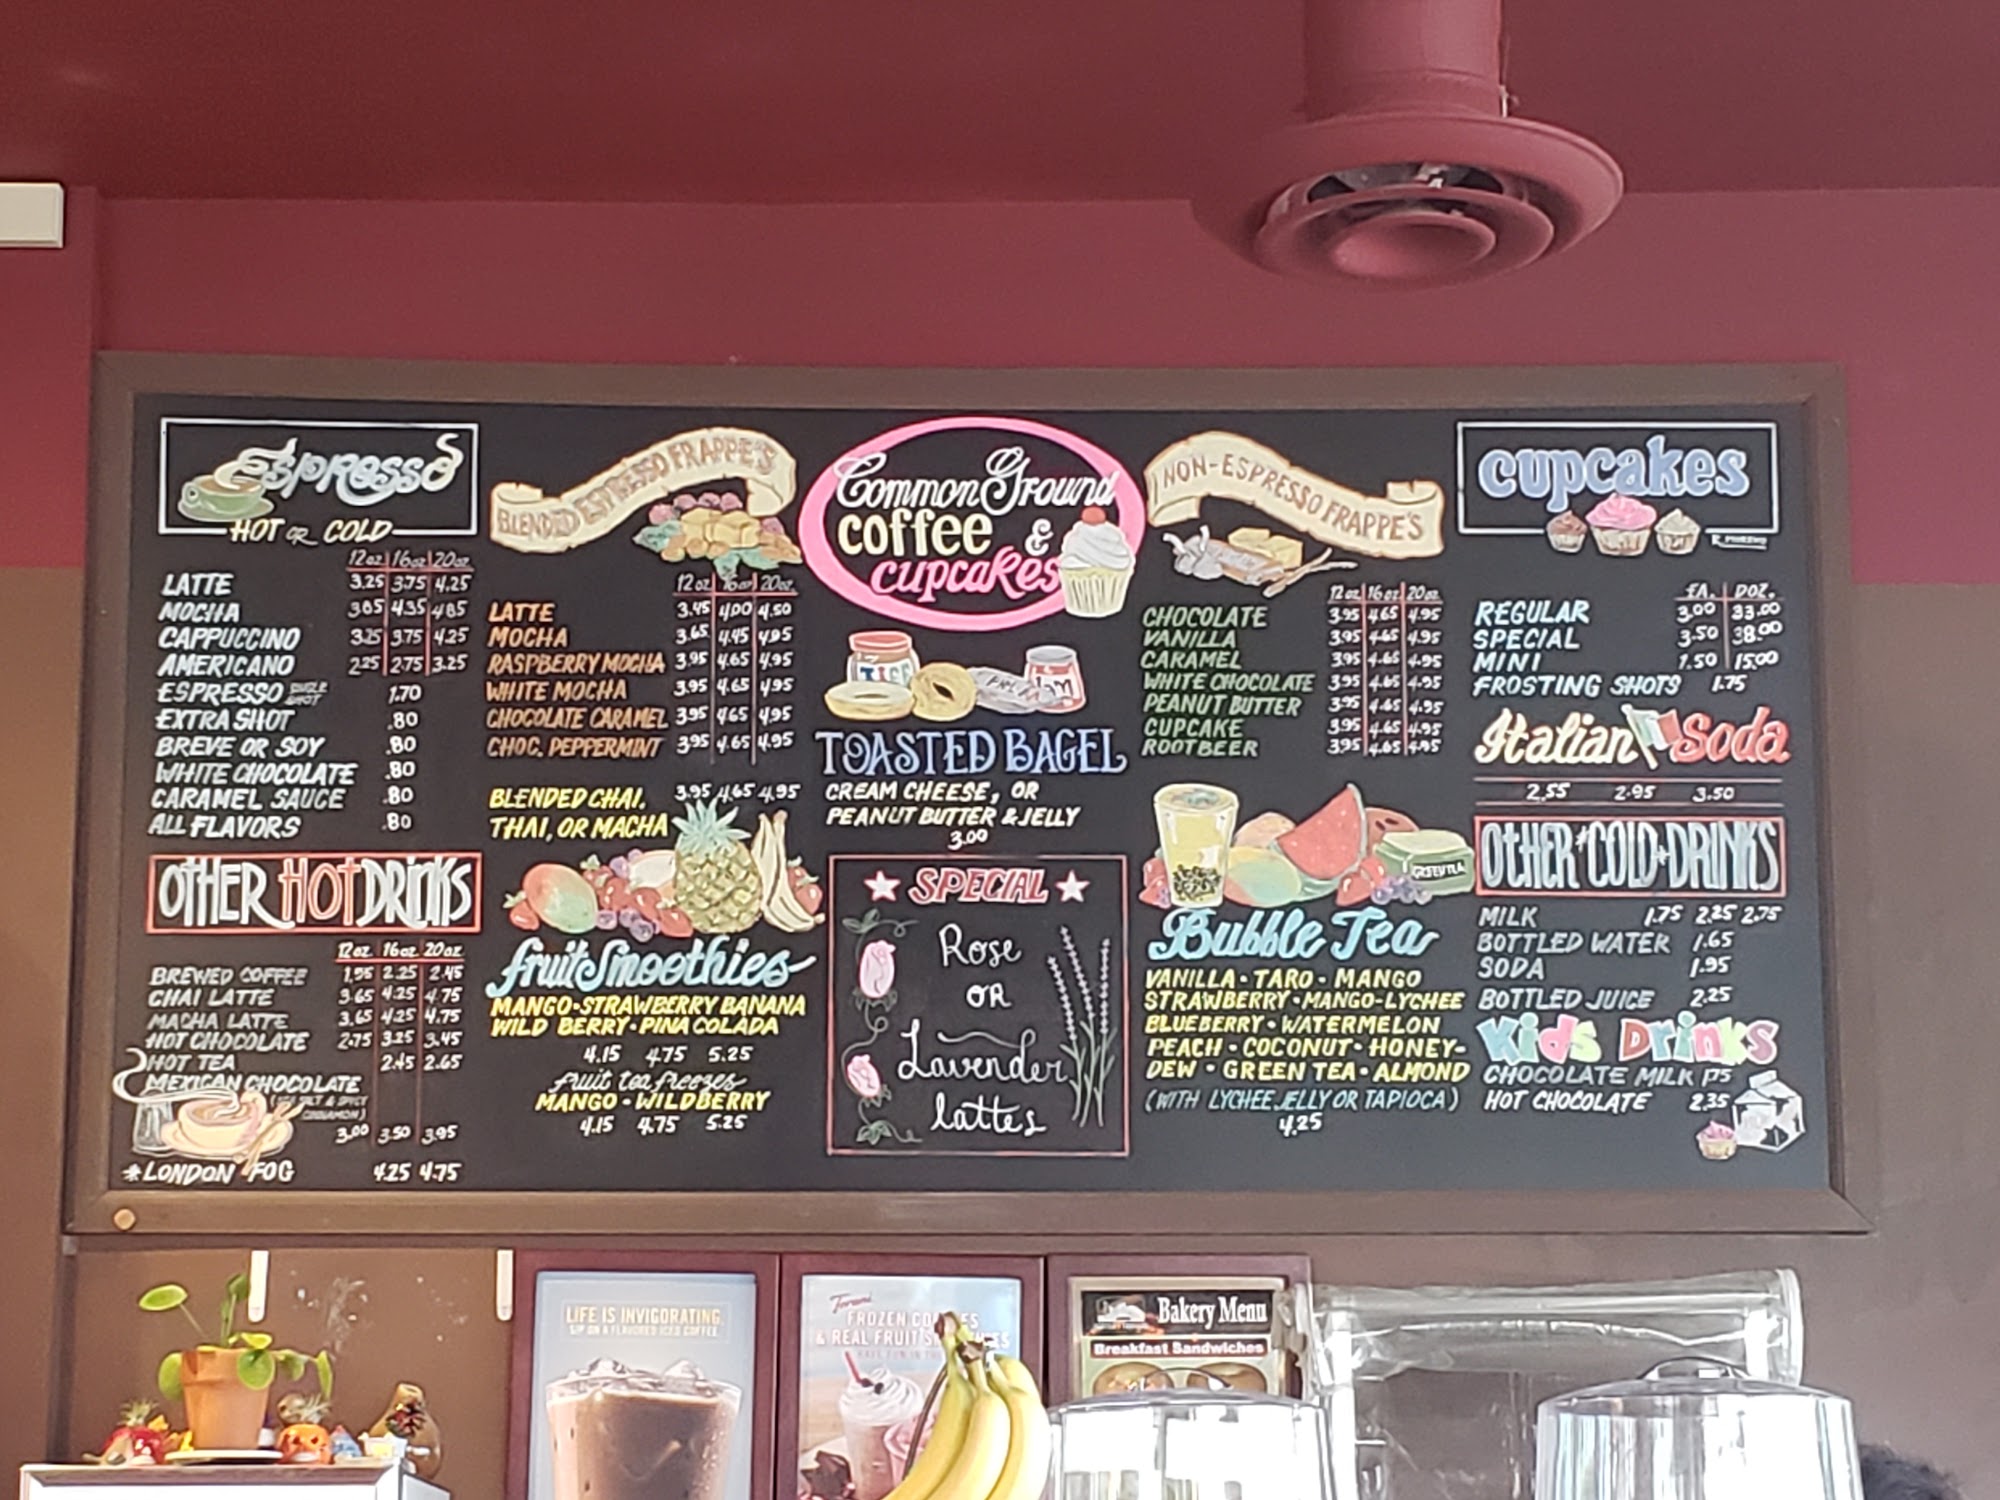 Espresso
HOT OR COLD
12oz. 16oz. 20oz.
LATTE 3.25 3.75 4.25
MOCHA 3.85 4.35 4.85
CAPPUCCINO 3.25 3.75 4.25
AMERICANO 2.25 2.75 3.25
ESPRESSO SINGLE SHOT 1.70
EXTRA SHOT .80
BREVE OR SOY .80
WHITE CHOCOLATE .80
CARAMEL SAUCE .80
ALL FLAVORS .80
OTHER HOT DRINKS
12oz. 16oz. 20oz.
BREWED COFFEE 1.95 2.25 2.45
CHAI LATTE 3.65 4.25 4.75
MACHA LATTE 3.65 4.25 4.75
HOT CHOCOLATE 2.75 3.25 3.45
HOT TEA 2.45 2.65
MEXICAN CHOCOLATE
SALT & SPICY
CINNAMON)
3.00 3.50 3.95
*LONDON FOG 4.25 4.75
BLENDED ESPRESSO FRAPPE'S
12oz. 16oz. 20oz.
LATTE 3.45 4.00 4.50
MOCHA 3.65 4.45 4.95
RASPBERRY MOCHA 3.95 4.65 4.95
WHITE MOCHA 3.95 4.65 4.95
CHOCOLATE CARAMEL 3.95 4.65 4.95
CHOC. PEPPERMINT 3.95 4.65 4.95
BLENDED CHAI, 3.95 4.65 4.95
THAI, OR MACHA
fruit Smoothies
MANGO • STRAWBERRY BANANA
WILD BERRY • PINA COLADA
4.15 4.75 5.25
fruit tea freezes
MANGO • WILDBERRY
4.15 4.75 5.25
Common Ground
coffee &
cupcakes
Jam
TOASTED BAGEL
CREAM CHEESE, OR
PEANUT BUTTER & JELLY
3.00
★ SPECIAL ★
Rose
OR
Lavender
lattes
NON-ESPRESSO FRAPPE'S
12oz. 16oz. 20oz.
CHOCOLATE 3.95 4.65 4.95
VANILLA 3.95 4.65 4.95
CARAMEL 3.95 4.65 4.95
WHITE CHOCOLATE 3.95 4.65 4.95
PEANUT BUTTER 3.95 4.65 4.95
CUPCAKE 3.95 4.65 4.95
ROOTBEER 3.95 4.65 4.95
GREEN TEA
Bubble Tea
VANILLA • TARO • MANGO
STRAWBERRY • MANGO-LYCHEE
BLUEBERRY • WATERMELON
PEACH • COCONUT • HONEY-
DEW • GREEN TEA • ALMOND
(WITH LYCHEE JELLY OR TAPIOCA)
4.25
cupcakes
EA. DOZ.
REGULAR 3.00 33.00
SPECIAL 3.50 38.00
MINI 1.50 15.00
FROSTING SHOTS 1.75
Italian Soda
2.55 2.95 3.50
OTHER * COLD * DRINKS
MILK 1.75 2.25 2.75
BOTTLED WATER 1.65
SODA 1.95
BOTTLED JUICE 2.25
Kids Drinks
CHOCOLATE MILK 1.75
HOT CHOCOLATE 2.35
LIFE IS INVIGORATING
SIP ON A FLAVORED ICED COFFEE
Torani
FROZEN
& REAL FRUIT
HAVE FUN IN THE
Bakery Menu
Breakfast Sandwiches